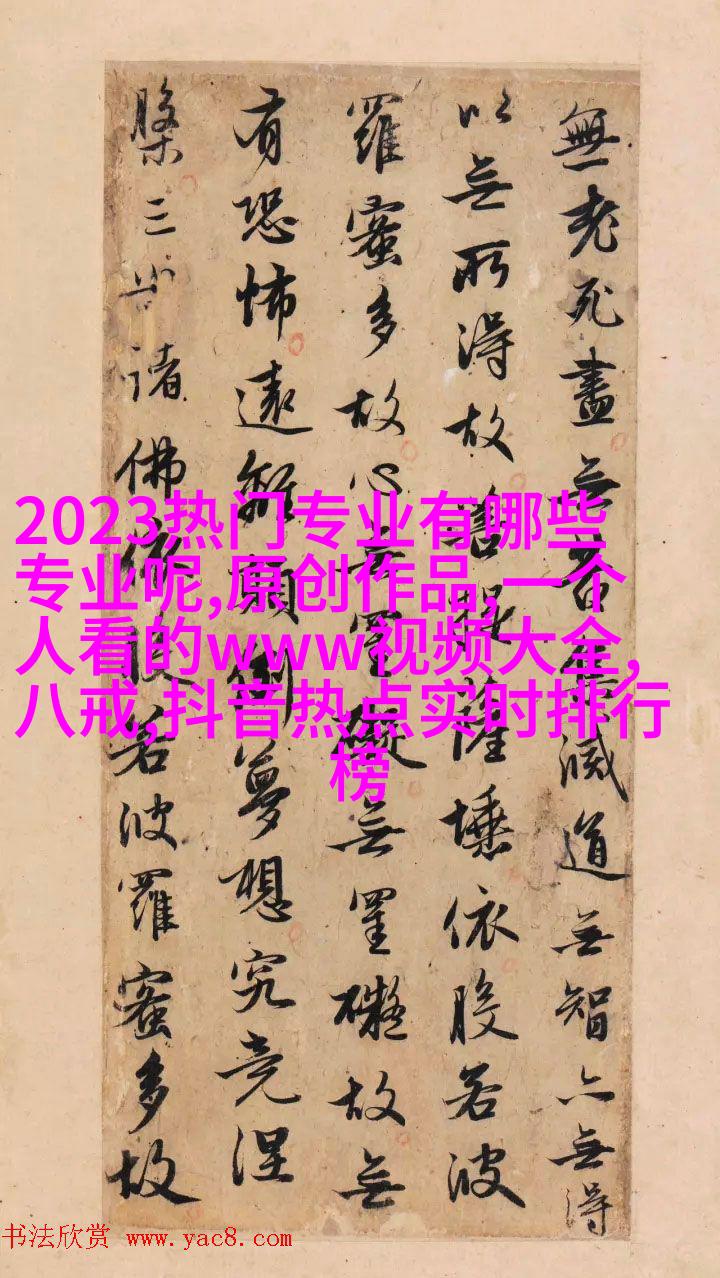 無老死盡無苦集滅道無智亦無得
以無所得故菩提薩埵依般若波
羅蜜多故心無罣礙無罣礙故無
有恐怖遠離顛倒夢想究竟涅
槃三世諸佛依般若波羅蜜多故
2023热门专业有哪些
专业呢,原创作品,一个
人看的www视频大全,
八戒,抖音热点实时排行
榜
书法欣赏 www.yac8.com